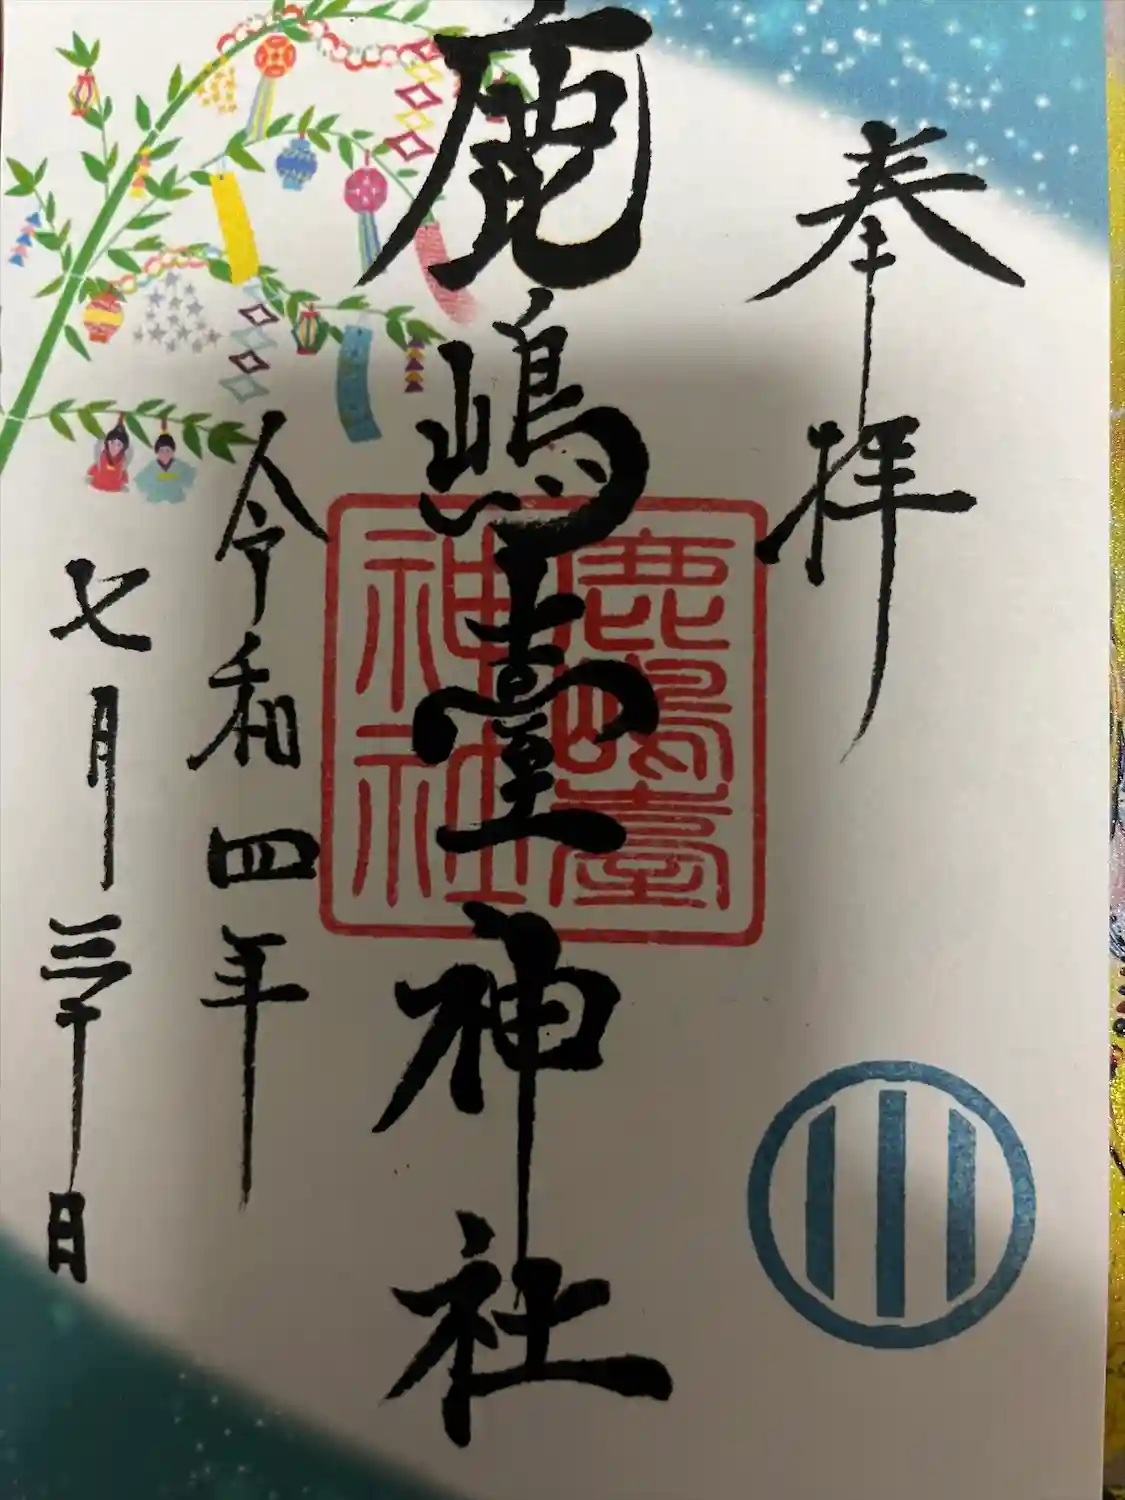 奉拝
鹿嶋臺神社
鹿嶋臺
神社
令和四年
七月三十日